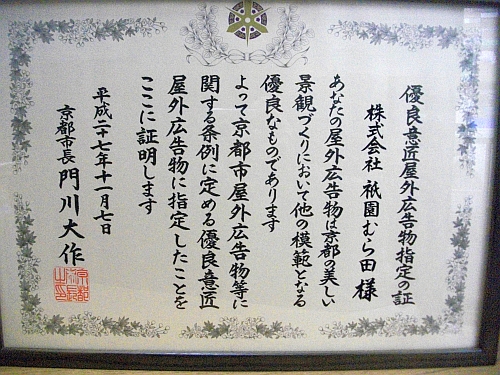 優良意匠屋外広告物指定の証
株式会社 祇園むら田 様
あなたの屋外広告物は京都の美しい
景観づくりにおいて他の模範となる
優良なものであります
よって京都市屋外広告物等に
関する条例に定める優良意匠
屋外広告物に指定したことを
ここに証明します
平成二十七年十一月七日
京都市長 門川大作